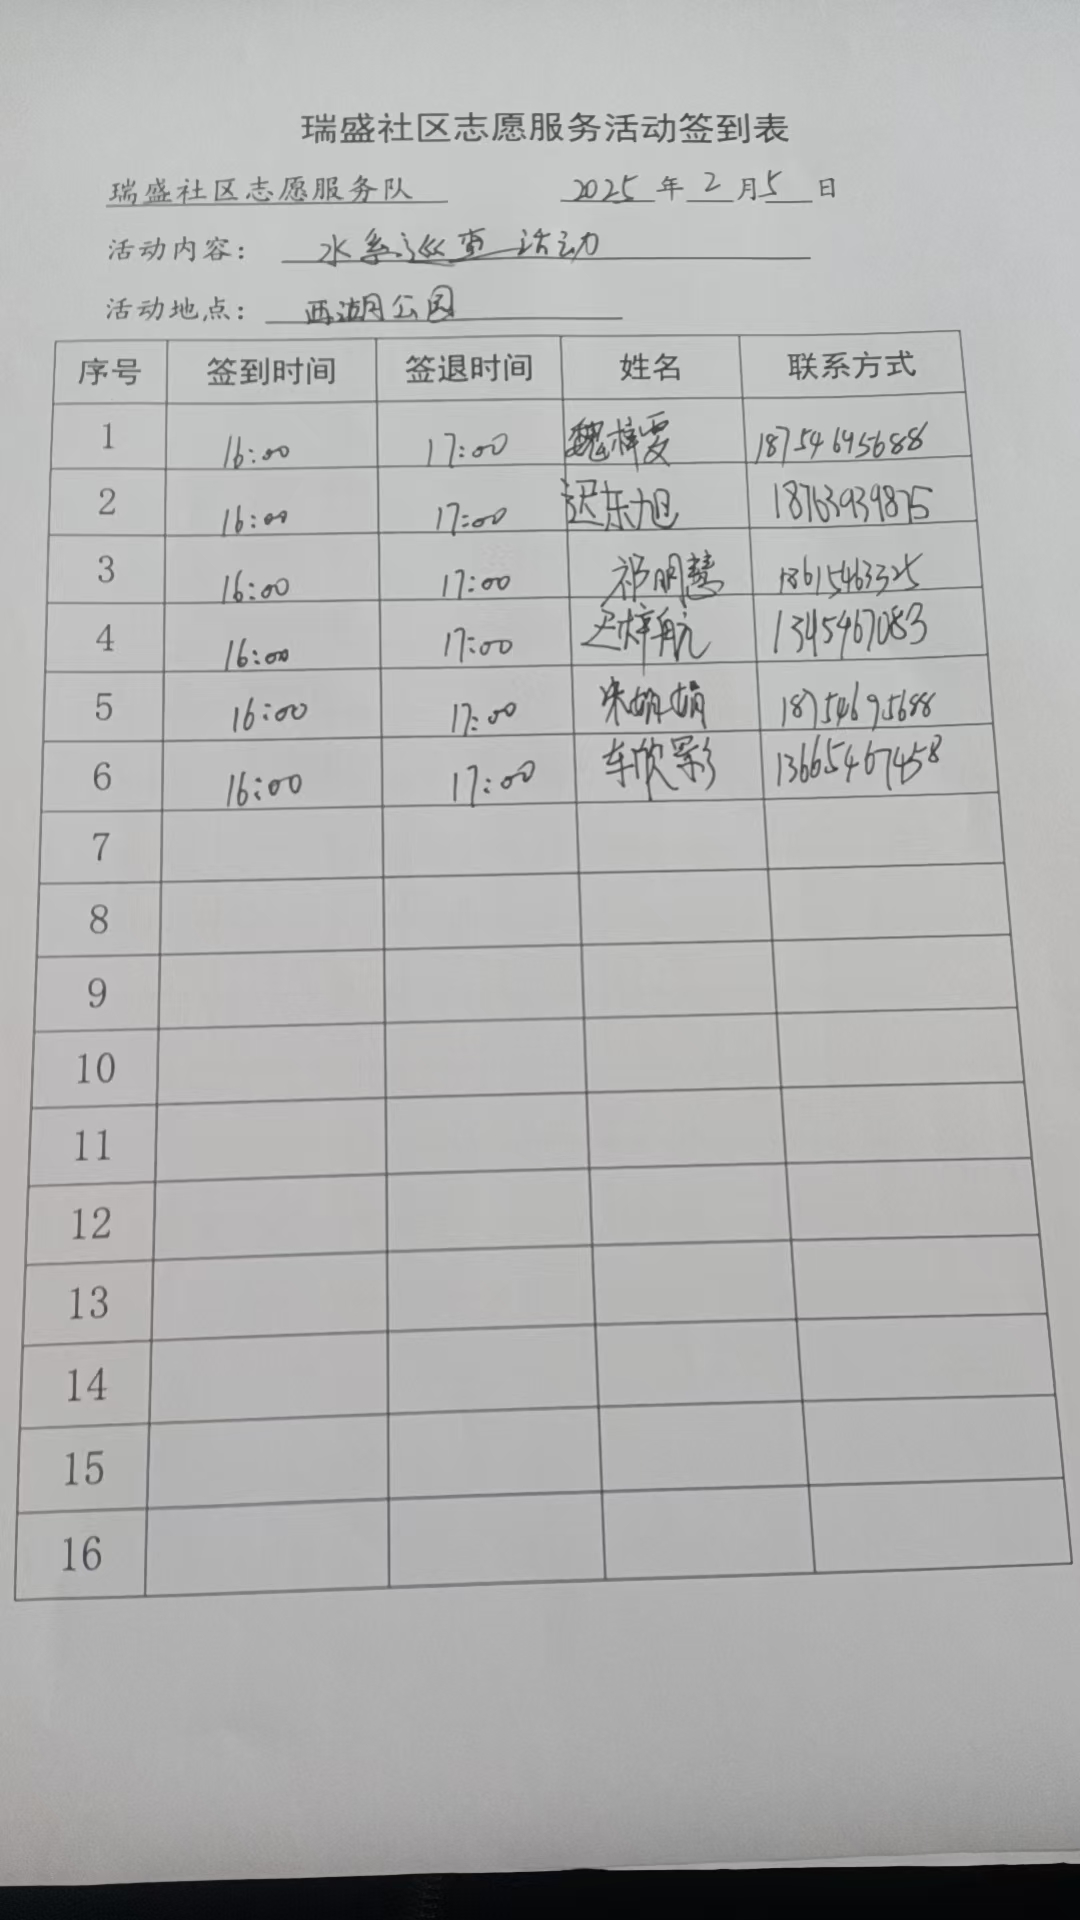 瑞盛社区志愿服务活动签到表
瑞盛社区志愿服务队 2025年2月5日
活动内容: 水系巡查活动
活动地点: 西湖公园
序号 签到时间 签退时间 姓名 联系方式
1 16:00 17:00 魏梓雯 18754695688
2 16:00 17:00 迟东旭 18763939875
3 16:00 17:00 祁明慧 18615463325
4 16:00 17:00 迟梓航 1345467083
5 16:00 17:00 宋娟娟 18754695688
6 16:00 17:00 车欣彩 13665467458
7
8
9
10
11
12
13
14
15
16